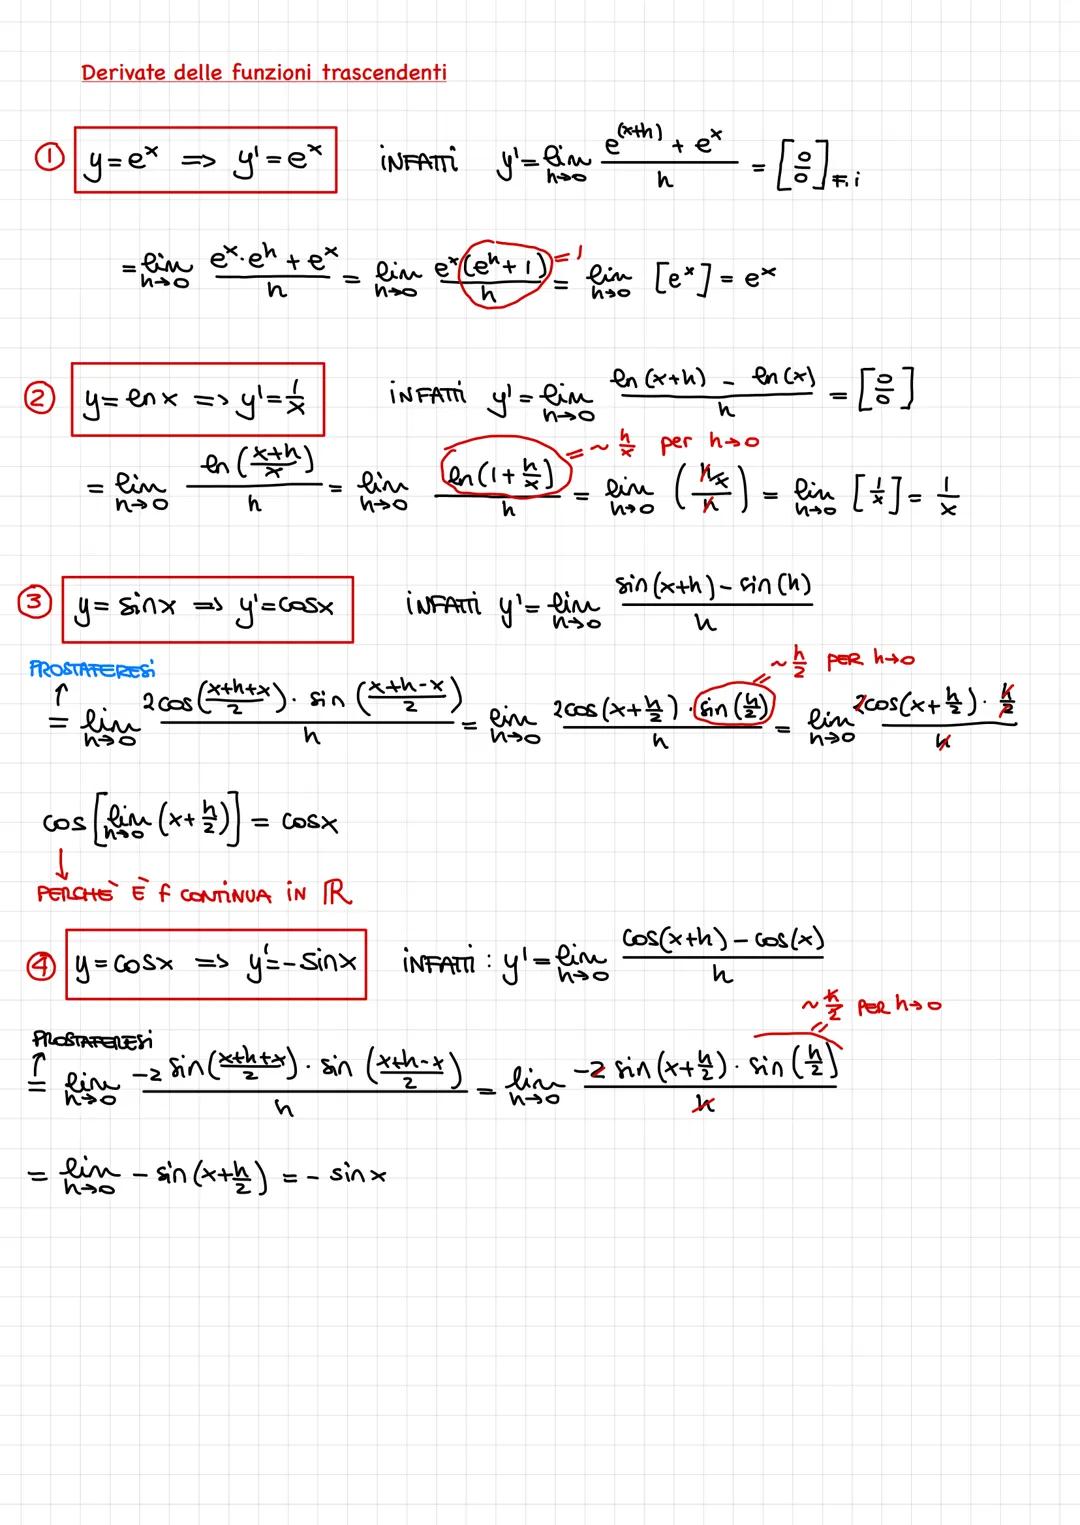 Derivate delle funzioni trascendenti
① y = eˣ ⇒ y' = eˣ INFATTI y' = lim h→0 (e^(x+h) + eˣ)/h = [0/0] F.i
= lim h→0 (eˣ·eʰ + eˣ)/h = lim h→0 eˣ(eʰ + 1)/h = 1 = lim h→0 [eˣ] = eˣ
② y = ln x ⇒ y' = 1/x INFATTI y' = lim h→0 (ln (x+h) - ln (x))/h = [0/0]
= ~ h/x per h→0
= lim h→0 ln ((x+h)/x)/h = lim h→0 ln (1 + h/x)/h = lim h→0 (h/x / h) = lim h→0 [1/x] = 1/x
③ y = sinx ⇒ y' = cosx INFATTI y' = lim h→0 (sin (x+h) - sin (h))/h
PROSTAFERESI
~ h/2 PER h→0
= lim h→0 (2cos ((x+h+x)/2) · sin ((x+h-x)/2))/h = lim h→0 (2cos (x+h/2) · sin (h/2))/h = lim h→0 (2cos(x+h/2) · h/2)/h
cos [lim h→0 (x+h/2)] = cosx
↓
PERCHÈ È f CONTINUA IN ℝ
④ y = cosx ⇒ y' = -sinx INFATTI : y' = lim h→0 (cos(x+h) - cos(x))/h
~ h/2 PER h→0
PROSTAFERESI
= lim h→0 (-2 sin ((x+h+x)/2) · sin ((x+h-x)/2))/h = lim h→0 (-2 sin (x+h/2) · sin (h/2))/h
= lim h→0 - sin (x+h/2) = - sinx